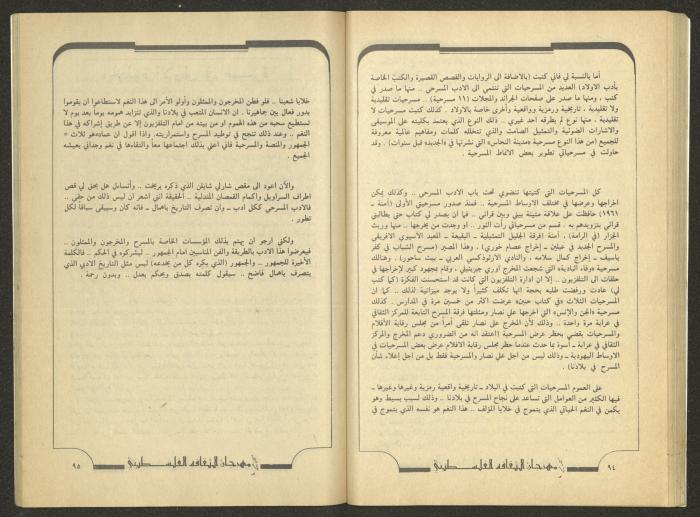 أما بالنسبة لي فاني كتبت (بالاضافة الى الروايات والقصص القصيرة والكتب الخاصة
بأدب الاولاد) العديد من المسرحيات التي تنتمي الى الادب المسرحي .. منها ما صدر في
كتب ، ومنها ما صدر على صفحات الجرائد والمجلات (١١ مسرحية) . مسرحيات تقليدية
ولا تقليدية ، تاريخية ورمزية وواقعية وأخرى خاصة بالاولاد . كذلك كتبت مسرحيات لا
تقليدية ، منها نوع لم يطرقه احد غيري . ذلك النوع الذي يعتمد بكليته على الموسيقى
والاشارات الضوئية والتمثيل الصامت والذي تتخلله كلمات ومفاهيم عالمية معروفة
للجميع (من هذا النوع مسرحية «مدينة النحاس» التي نشرتها في «الجديد» قبل سنوات) . وقد
حاولت في مسرحياتي تطوير بعض الانماط المسرحية .
كل المسرحيات التي كتبتها تنضوي تحت باب الادب المسرحي .. وكذلك يمكن
اخراجها وعرضها في مختلف الاوساط المسرحية .. فمنذ صدور مسرحيتي الأولى (آمنة ـ
١٩٦١) حافظت على علاقة متينة بيني وبين قرائي .. فما ان يصدر لي كتاب حتى يطالبني
قرائي بتزويدهم به . قسم من مسرحياتي رأت النور .. او وجدت من يخرجها .. منها وريث
الجزار (في الرامة) . آمنة (فرقة الجليل التمثيلية ـ البقيعة ـ المعبد الآسيوي الافريقي
والمسرح الجديد في عبلين ـ إخراج عصام خوري) ، وهذا المصير (مسرح الشباب في كفر
ياسيف ـ إخراج كمال سلامه ، والنادي الارثوذكسي العربي ـ بيت ساحور) . وهنالك
مسرحية «وفاء البادية» التي شجعت المخرج اوري جبرئيلي ، وقام بمجهود كبير لإخراجها في
حلقات الى التلفزيون .. إلا ان ادارة التلفزيون التي كانت قد استحسنت الفكرة (كما كتب
لي) عادت ورفضت طلبه بحجة انها تكلف كثيراً ولا يوجد ميزانية لذلك .. كما ان
المسرحيات الثلاث «في كتاب حنين» عرضت اكثر من خمسين مرة في المدارس . كذلك
مسرحية «الجن والإنس» التي أخرجها علي نصار ومثلتها فرقة المسرح التابعة للمركز الثقافي
في عرابة مرة واحدة .. وذلك لأن المخرج علي نصار تلقى أمراً من مجلس رقابة الأفلام
والمسرحيات يقضي بحظر عرض المسرحية (اعتقد انه من الضروري دعم المخرج والمركز
الثقافي في عرابة ـ أسوة بما حدث عندما حظر مجلس رقابة الافلام عرض بعض المسرحيات في
الاوساط اليهودية ـ وذلك ليس من اجل علي نصار والمسرحية فقط بل من أجل إعلاء شأن
المسرح في بلادنا) .
على العموم المسرحيات التي كتبت في البلاد ـ تاريخية واقعية رمزية وغيرها وغيرها ـ
فيها الكثير من العوامل التي تساعد على نجاح المسرح في بلادنا .. وذلك لسبب بسيط وهو
يكمن في النغم الحياتي الذي يتموج في خلايا المؤلف .. هذا النغم هو نفسه الذي يتموج في
مهرجان الثقافه الفلسطيني
٩٤
خلايا شعبنا .. فلو فطن المخرجون والممثلون وأولو الأمر الى هذا النغم لاستطاعوا ان يقوموا
بدور فعال بين جماهيرنا . ان الانسان المتعب في بلادنا والذي تتزايد همومه يوماً بعد يوم لا
تستطيع سحبه من هذه الهموم او من بيته من امام التلفزيون إلا عن طريق إشراكه في هذا
النغم .. وعند ذلك ننجح في توطيد المسرح واستمراريته. واذا اقول ان عماده هو ثلاث =
الجمهور والمنصة والمسرحية فاني اعني بذلك اجتماعها معاً والتقاءها في نغم وجداني يعيشه
الجميع .
والآن اعود الى مقص شارلي شابلن الذي ذكره بريخت .. وأتساءل هل يحق لي قص
اطراف السراويل واكمام القمصان المتدلية .. الحقيقة انني اشعر ان ليس ذلك من حقي ..
فالادب المسرحي ككل أدب ـ وان تصرف التاريخ باهمال ـ فانه كان وسيبقى سباقاً لكل
تطور .
ولكني ارجو ان يهتم بذلك المؤسسات الخاصة بالمسرح والمخرجون والممثلون ..
فيعرضوا هذا الادب بالطريقة والفن المناسبين امام الجمهور .. ليشركوه في الحكم .. فالكلمة
الأخيرة للجمهور .. والجمهور (الذي يكره كل من يخدعه) ليس مثل التاريخ الادبي الذي
يتصرف باهمال فاضح .. سيقول كلمته بصدق ويحكم بعدل .. وبدون رحمة .
مهرجان الثقافه الفلسطيني
٩٥